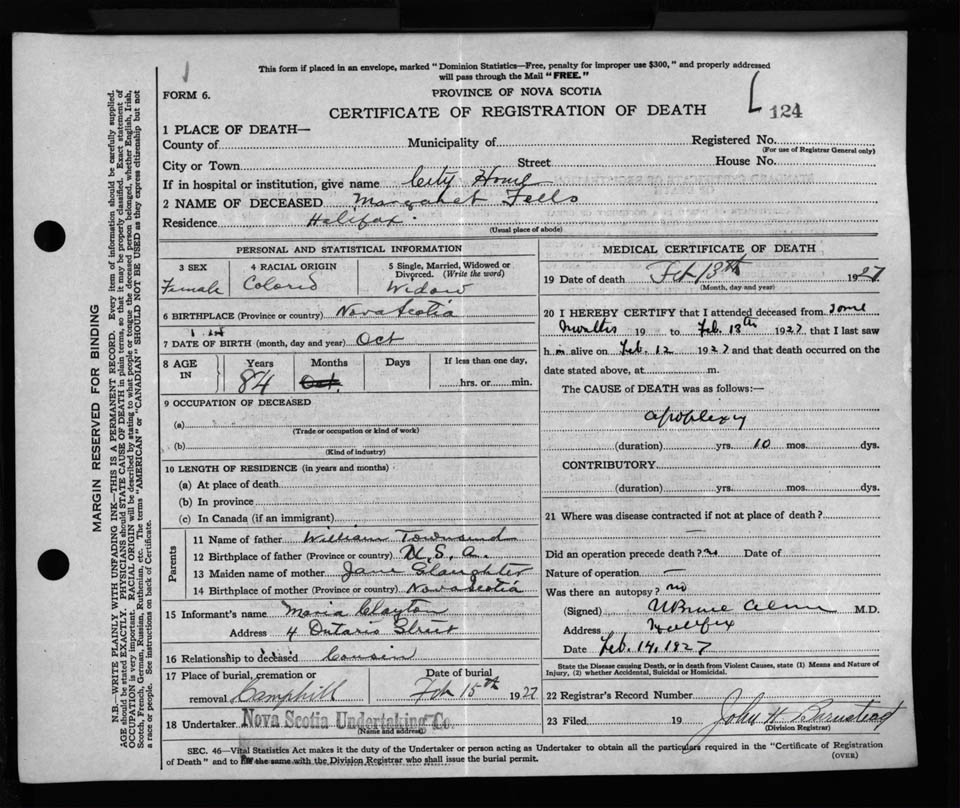 This form if placed in an envelope, marked "Dominion Statistics—Free, penalty for improper use $300," and properly addressed
will pass through the Mail "FREE."
FORM 6.
PROVINCE OF NOVA SCOTIA
CERTIFICATE OF REGISTRATION OF DEATH
124
1 PLACE OF DEATH—
County of Municipality of Registered No.
(For use of Registrar General only)
City or Town Street House No.
If in hospital or institution, give name City Home
2 NAME OF DECEASED Margaret Fells
Residence Halifax
(Usual place of abode)
PERSONAL AND STATISTICAL INFORMATION
3 SEX 4 RACIAL ORIGIN 5 Single, Married, Widowed or
Divorced. (Write the word)
Female Colored Widow
6 BIRTHPLACE (Province or country) Nova Scotia
7 DATE OF BIRTH (month, day and year) Oct
8 AGE IN Years Months Days If less than one day,
84 Oct. hrs. or min.
9 OCCUPATION OF DECEASED
(a)
(Trade or occupation or kind of work)
(b)
(Kind of industry)
10 LENGTH OF RESIDENCE (in years and months)
(a) At place of death
(b) In province
(c) In Canada (if an immigrant)
Parents
11 Name of father William Townsend
12 Birthplace of father (Province or country) U.S.A.
13 Maiden name of mother Jane Slaughter
14 Birthplace of mother (Province or country) Nova Scotia
15 Informant's name Maria Clayton
Address 4 Ontario Street
16 Relationship to deceased Cousin
17 Place of burial, cremation or
removal Camphill
Date of burial
Feb 15th 1927
18 Undertaker Nova Scotia Undertaking Co.
(Name and address)
MEDICAL CERTIFICATE OF DEATH
19 Date of death Feb 13th 1927
(Month, day and year)
20 I HEREBY CERTIFY that I attended deceased from some
months 19 to Feb. 13th 1927 that I last saw
h m alive on Feb. 12 1927 and that death occurred on the
date stated above, at m.
The CAUSE of DEATH was as follows:—
apoplexy
(duration) yrs. 10 mos. dys.
CONTRIBUTORY
(duration) yrs. mos. dys.
21 Where was disease contracted if not at place of death?
—
Did an operation precede death? no Date of
Nature of operation —
Was there an autopsy? no
(Signed) M.D.
Address Halifax
Date Feb. 14, 1927
State the Disease causing Death, or in death from Violent Causes, state (1) Means and Nature of
Injury, (2) whether Accidental, Suicidal or Homicidal.
22 Registrar's Record Number
23 Filed 19 John H Barnstead
(Division Registrar)
SEC. 46—Vital Statistics Act makes it the duty of the Undertaker or person acting as Undertaker to obtain all the particulars required in the "Certificate of Registration
of Death" and to file the same with the Division Registrar who shall issue the burial permit.
(OVER)
MARGIN RESERVED FOR BINDING
N.B.—WRITE PLAINLY WITH UNFADING INK—THIS IS A PERMANENT RECORD. Every item of information should be carefully supplied.
AGE should be stated EXACTLY. PHYSICIANS should STATE CAUSE OF DEATH in plain terms, so that it may be properly classified. Exact statement of
OCCUPATION is very important. RACIAL ORIGIN will be described by stating to what people or tongue the deceased person belonged, whether English, Irish,
Scotch, French, German, Russian, Ruthenian, etc. The terms "AMERICAN" or "CANADIAN" SHOULD NOT BE USED as they express citizenship but not
a race or people. See instructions on back of Certificate.